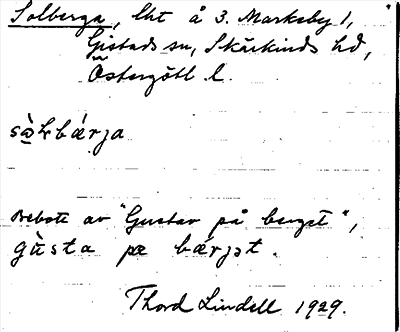 Solberga, lht å 3. Markeby 1,
Gistads sn, Skärkinds hd,
Östergötl. l.
sɔ̀ƚbǽrja
Bebott av "Gustav på berget",
gùsta pæ bǽrjət.
Thord Lindell 1929.